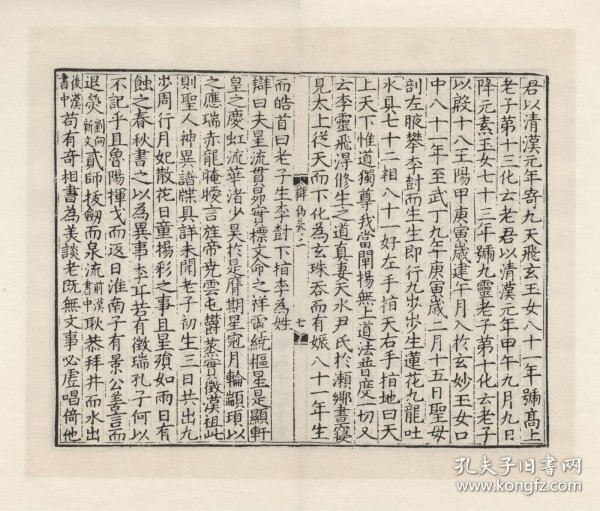 君以清漢元年寄九天飛玄玉女八十一年號高上
老子第十三化云老君以清漢元年甲午九月九日
降元素玉女七十三年號九靈老子第十化云老子
以殷十八王陽甲庚寅歲建午月入於玄妙玉女口
中八十一年至武丁九年庚寅歲二月十五日聖母
剖左腋攀李尌而生生即行九步步生蓮花九龍吐
水具七十二相八十一好左手指天右手指地曰天
上天下惟道獨尊我當闡揚無上道法普度一切又
云李靈飛得修生之道真妻天水尹氏於瀨鄉晝寢
見太上從天而下化為玄珠吞而有娠八十一年生
而皓首曰老子生李尌下指李為姓
辯偽卷二
七
辯曰夫星流貫昴實標文命之祥雷繞樞星是顯軒
皇之慶虹流華渚少昊於是膺期星冠月輪顓頊以
之應瑞赤龍晻曖言旌帝堯雲屯欝蒸實徵漢祖此
則聖人神異諸牒具詳未聞老子初生三日共出九
步周行月妃散花日童揚彩之事且星殞如雨日有
蝕之春秋書之以為異事李耳若有徵瑞孔子何以
不記乎且魯陽揮戈而返日淮南子有景公善言而
退熒劉向新文貳師拔劒而泉流前漢書中耿恭拜井而水出
後漢書中苟有奇相書為美談老既無文事必虛唱倚他
孔夫子旧书网
www.kongfz.com